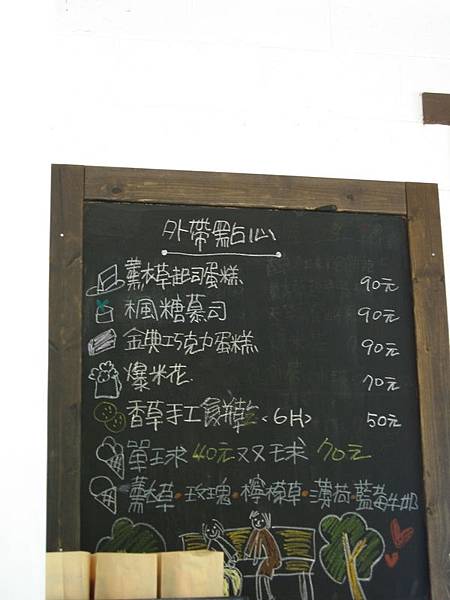 外帶點心
薰衣草起司蛋糕 90元
楓糖慕司 90元
金典巧克力蛋糕 90元
爆米花 70元
香草手工餅乾<6H> 50元
單球40元双球70元
薰衣草·玫瑰·檸檬草·薄荷·藍莓牛奶